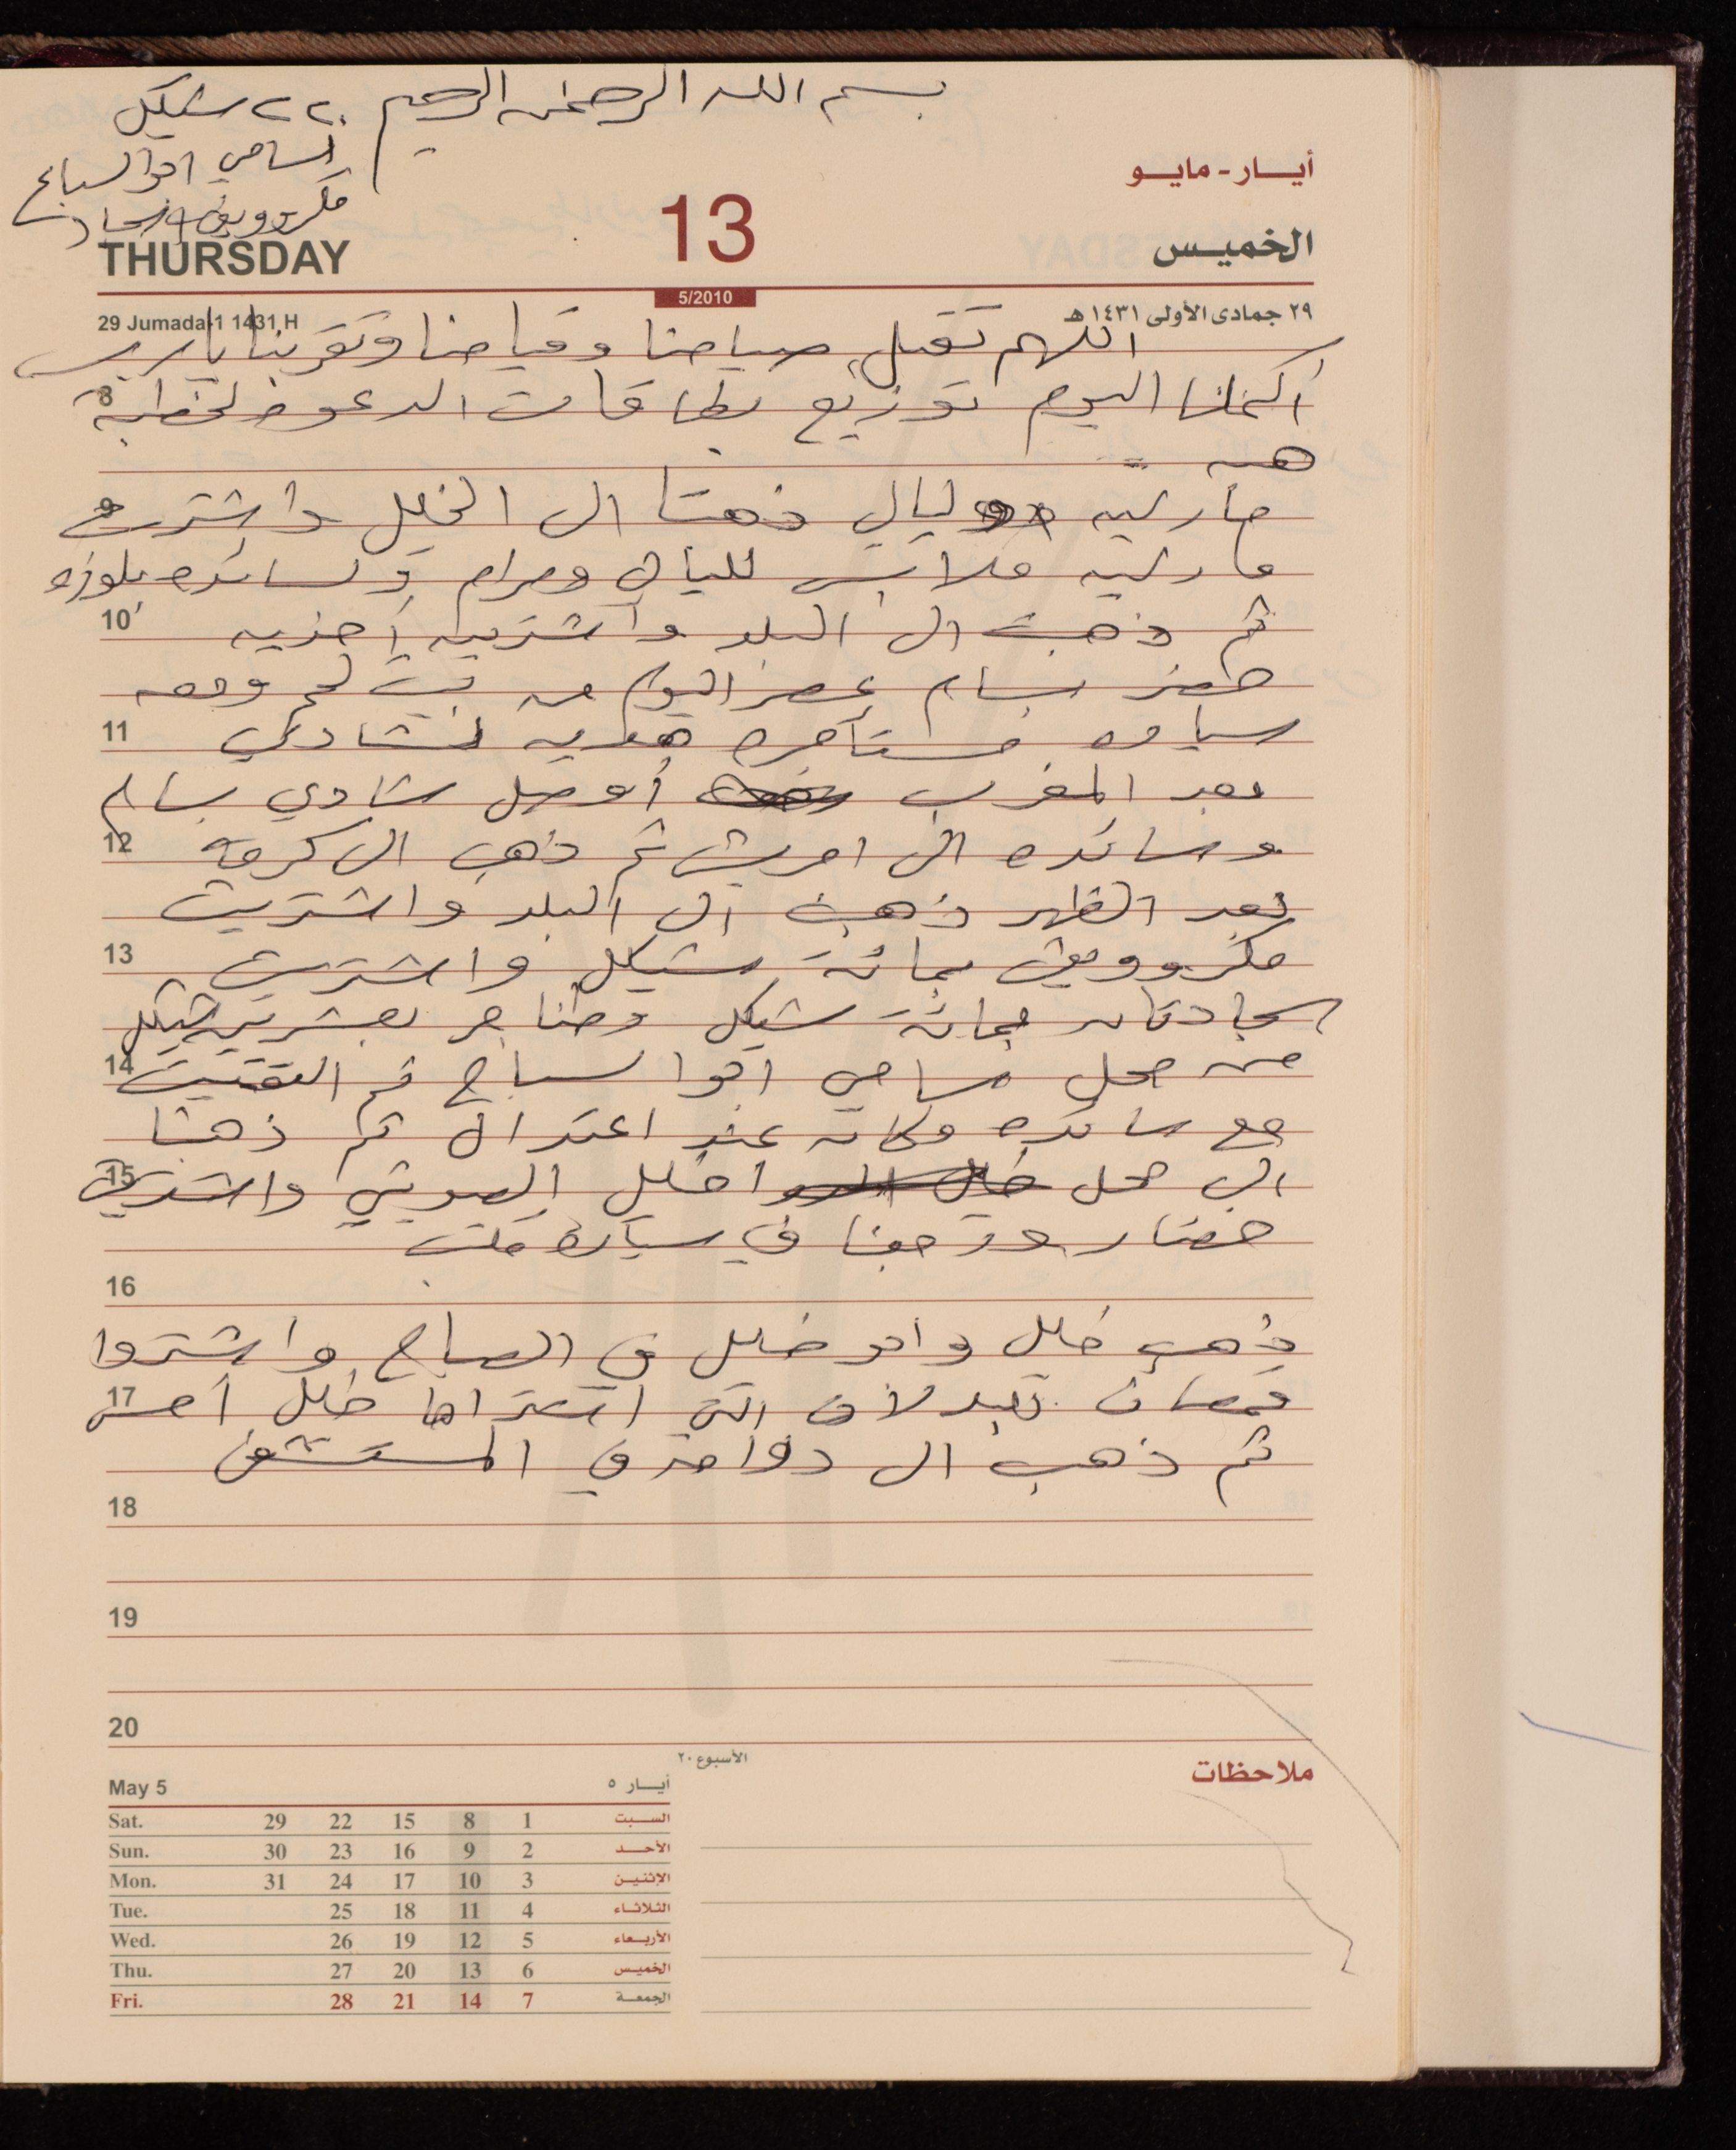 بسم الله الرحمن الرحيم ٢٢٠ شيكل
لسامي ابو السباع
مكروويف وسجاد
أيــار - مايــو
13
THURSDAY
الخميـس
5/2010
29 Jumada-1 1431 H
٢٩ جمادى الأولى ١٤٣١ هـ
اللهم تقبل صيامنا وقيامنا وتقربنا يا رب
أكملنا اليوم توزيع بطاقات الدعوه لخطبة
8
هبه
مارلين ليالي ذهبتا الى الخليل واشترت
9
مارلين ملابس لليالي ومرام ولسائده بلوزه
10
ثم ذهبت الى البلد واشتريت أحذيه
حضر بسام عصر اليوم من بيت لحم ومعه
11
سياره مستأجره هديه لشادي
بعد المغرب أوصل شادي بسام
12
وسائده الى امريش ثم ذهب الى كرمه
بعد الظهر ذهبت الى البلد واشتريت
13
مكروويف بمائة شيكل واشتريت
سجادتان بمائة شيكل وطناجر بعشرين شيكل
14
من محل سامي ابو السباع ثم التقيت
مع سائده وكانت عند اعتدال ثم ذهبنا
15
الى محل خليل واشتريت
خضار ورجعنا في سيارة
16
ذهب خليل وابو خليل في الصباح واشتروا
17
قمصان بدلات التي اشتراها خليل أمس
ثم ذهب الى دوامه في المستشفى
18
19
20
الأسبوع ٢٠
ملاحظات
May 5
أيــار ٥
Sat. 29 22 15 8 1 السـبت
Sun. 30 23 16 9 2 الأحـد
Mon. 31 24 17 10 3 الإثنيـن
Tue. 25 18 11 4 الثلاثـاء
Wed. 26 19 12 5 الأربـعاء
Thu. 27 20 13 6 الخميـس
Fri. 28 21 14 7 الجمعـة